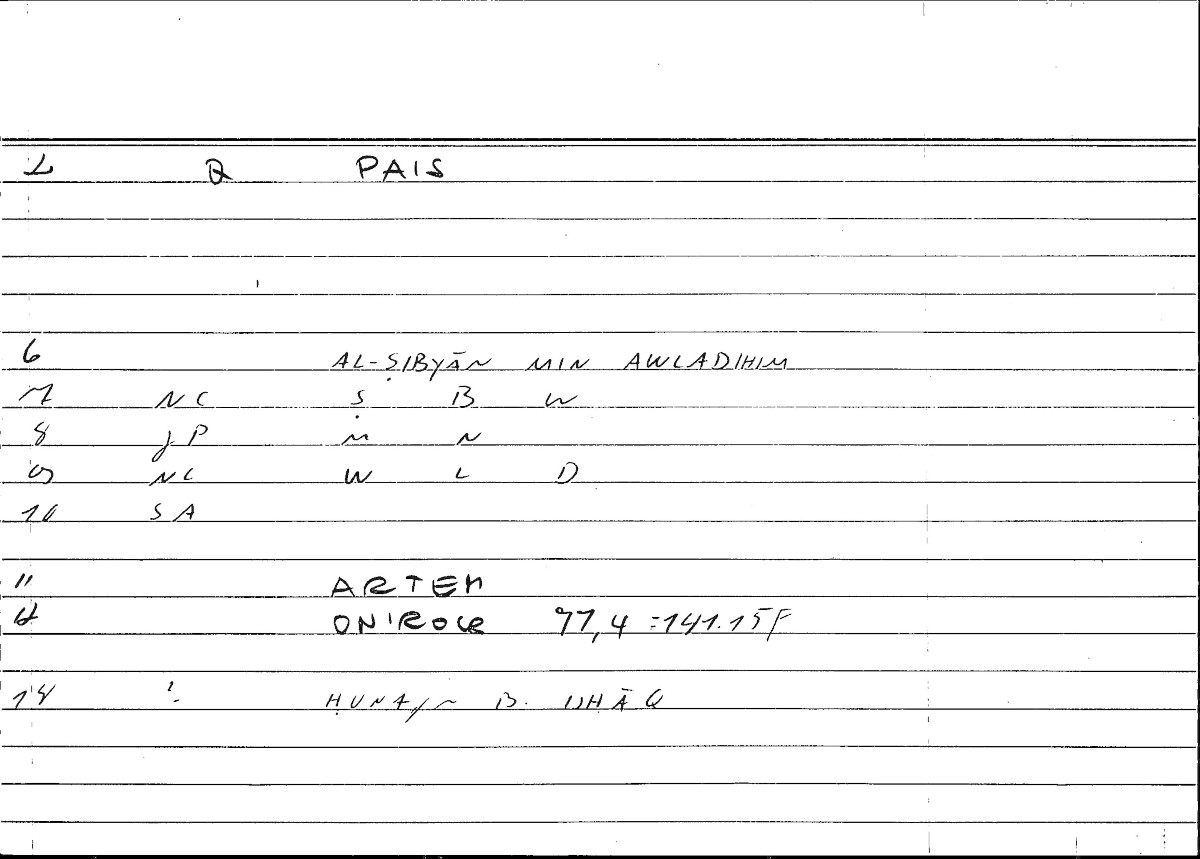 L R PAIS
6 AL-ṢIBYĀN MIN AWLADIHIM
7 NC Ṣ B W
8 JP M N
9 NC W L D
10 SA
11 ARTEM
12 ONIROCR 77,4 = 141.15F
14 ? ḤUNAYN B. ISHĀQ